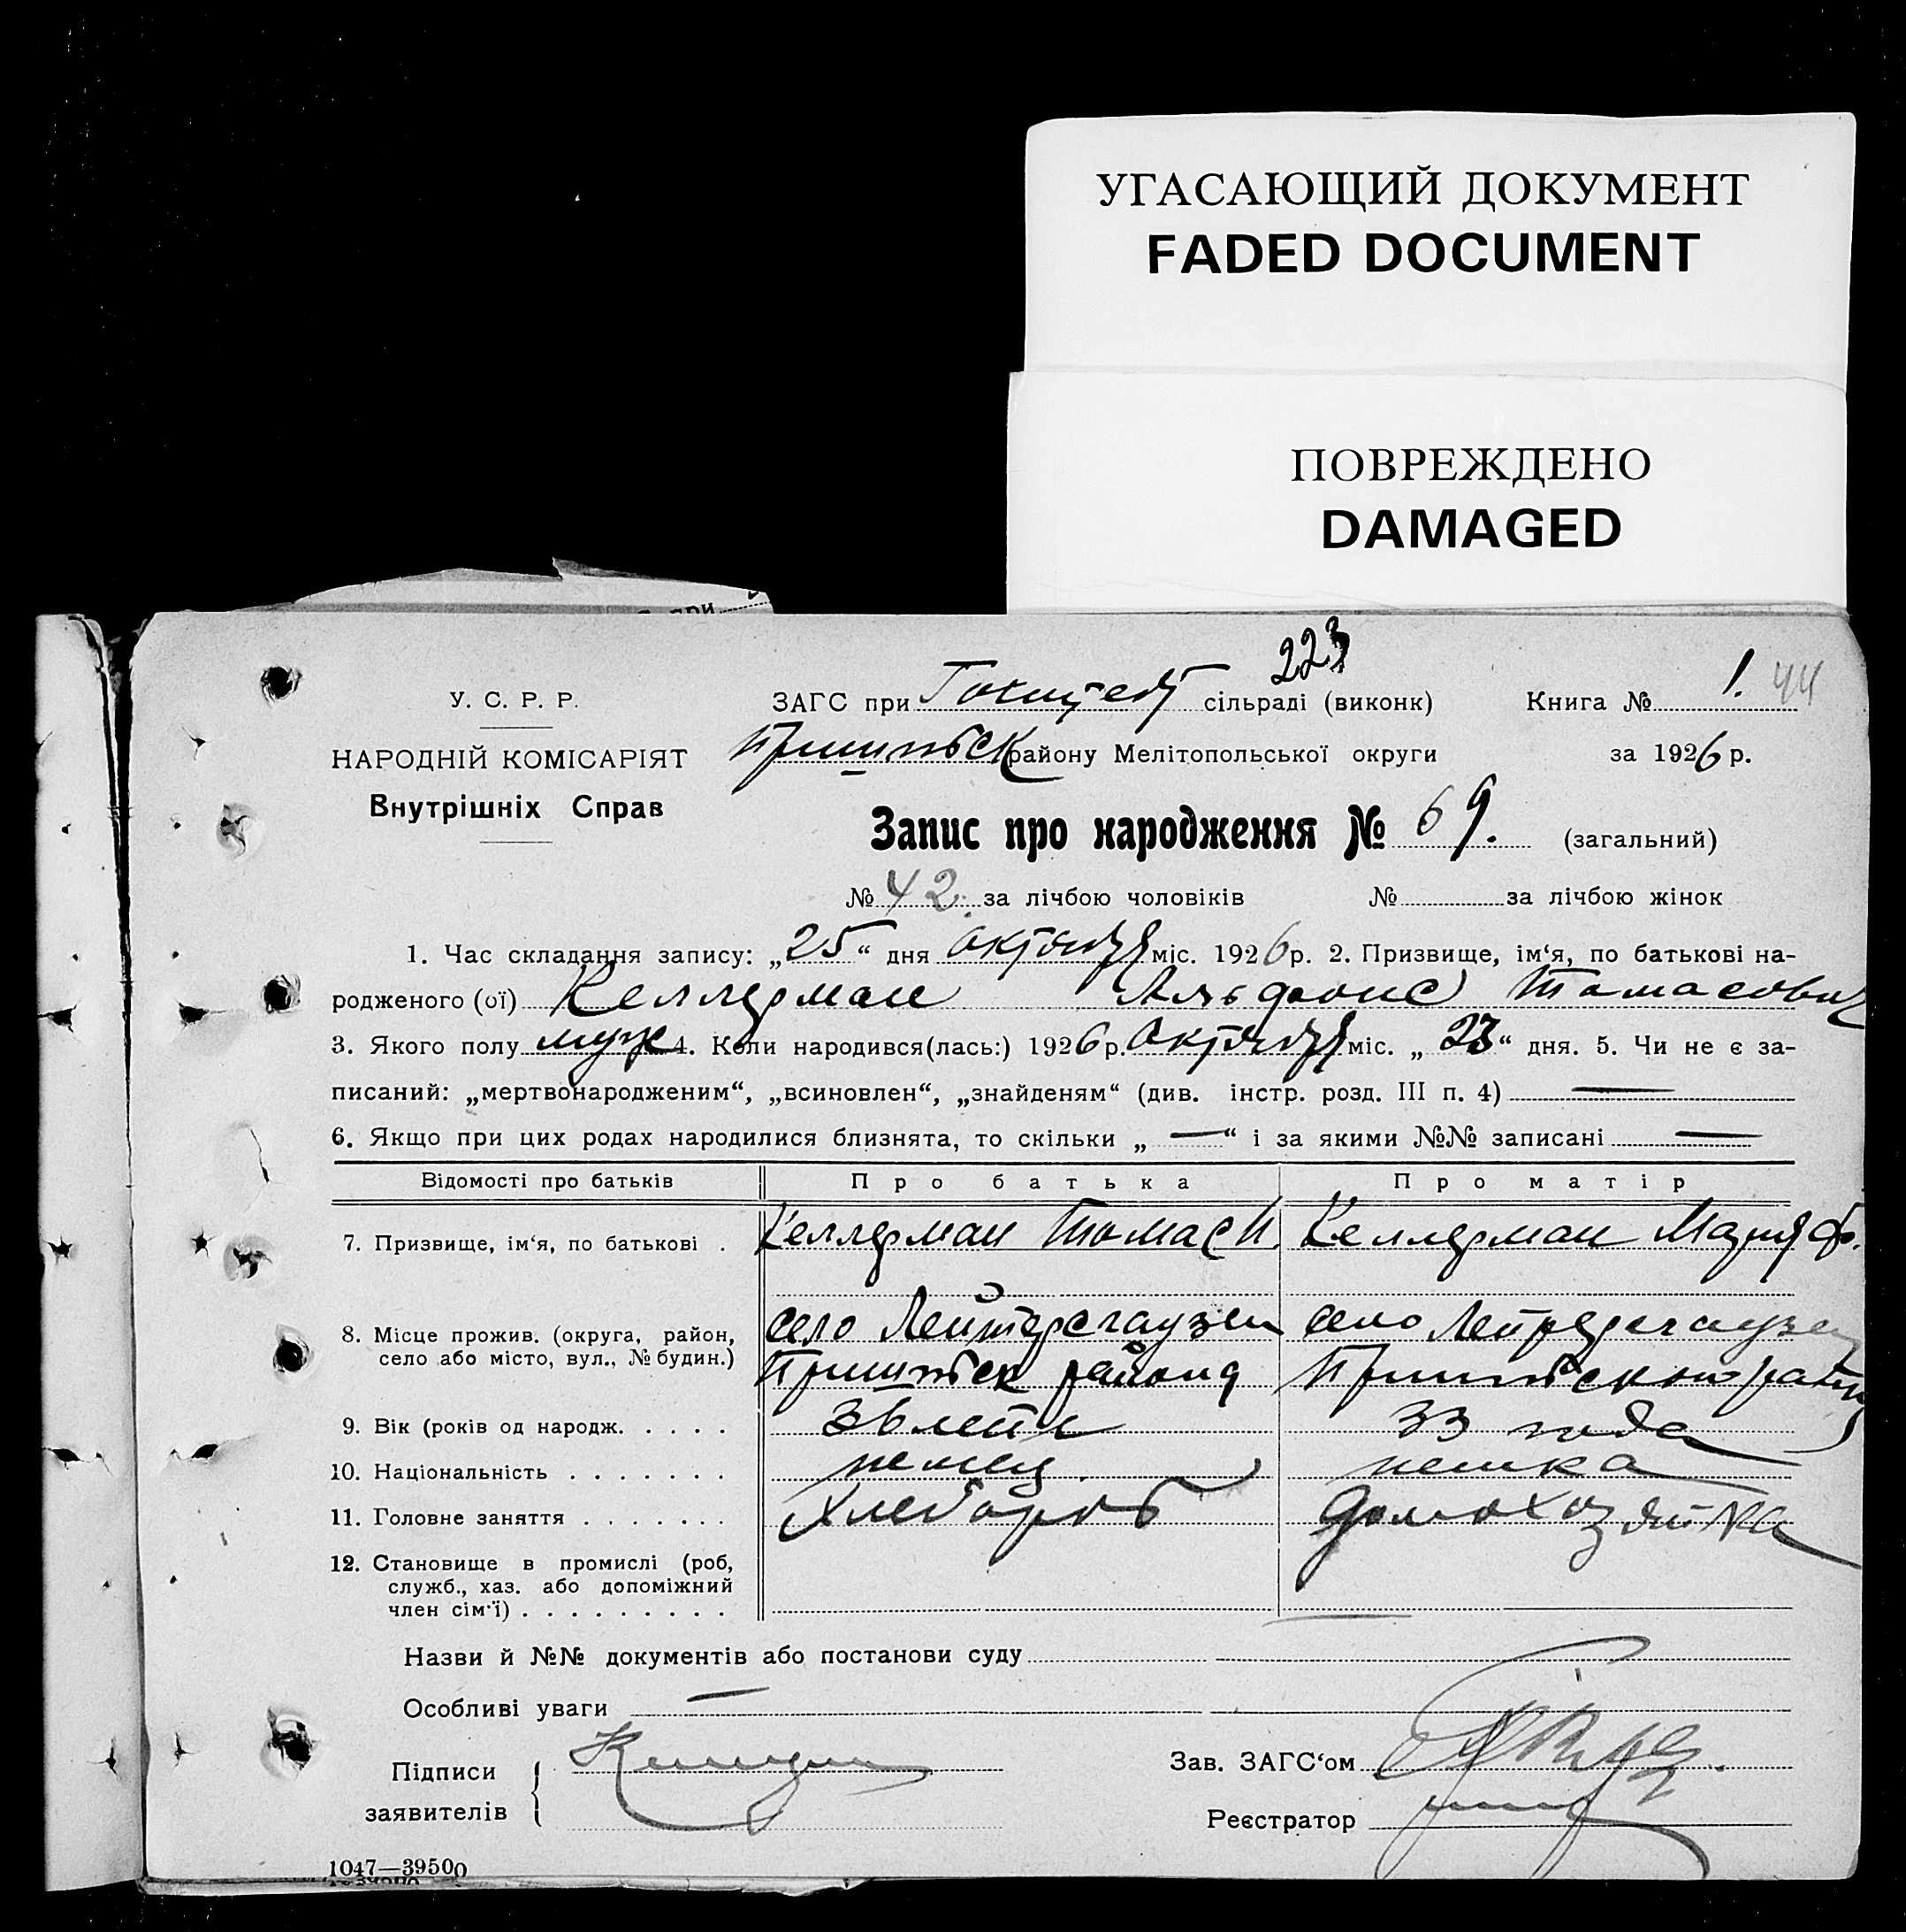 УГАСАЮЩИЙ ДОКУМЕНТ
FADED DOCUMENT
ПОВРЕЖДЕНО
DAMAGED
при
223
У. С. Р. Р.
ЗАГС при сільраді (виконк)
Книга № 1. 44
НАРОДНІЙ КОМІСАРІЯТ
Внутрішніх Справ
Пришибск району Мелітопольської округи
за 1926 р.
Запис про народження № 69. (загальний)
№ 42. за лічбою чоловіків № за лічбою жінок
1. Час складання запису: „25“ дня октября міс. 1926 р. 2. Призвище, ім‘я, по батькові на-
родженого (ої) Келлерман Альфонс Томасович
3. Якого полу муж 4. Коли народився(лась:) 1926 р. октября міс. „23“ дня. 5. Чи не є за-
писаний: „мертвонародженим“, „всиновлен“, „знайденям“ (див. інстр. розд. III п. 4) —
6. Якщо при цих родах народилися близнята, то скільки „—“ і за якими №№ записані —
Відомості про батьків Про батька Про матір
7. Призвище, ім‘я, по батькові . Келлерман Томас И. Келлерман Мария Ф.
8. Місце прожив. (округа, район, село або місто, вул., № будин.)
село Лейтерсгаузен
Пришибск района
село Лейтерсгаузен
Пришибского район
9. Вік (років од народж. . . . . 36 лет 33 года
10. Національність . . . . . . . немец немка
11. Головне заняття . . . . . . . Хлебороб домохозяйка
12. Становище в промислі (роб,
служб., хаз. або допоміжний
член сім‘ї) . . . . . . . . .
Назви й №№ документів або постанови суду
Особливі уваги —
Підписи
заявителів
Зав. ЗАГС‘ом
Реєстратор
1047—39500